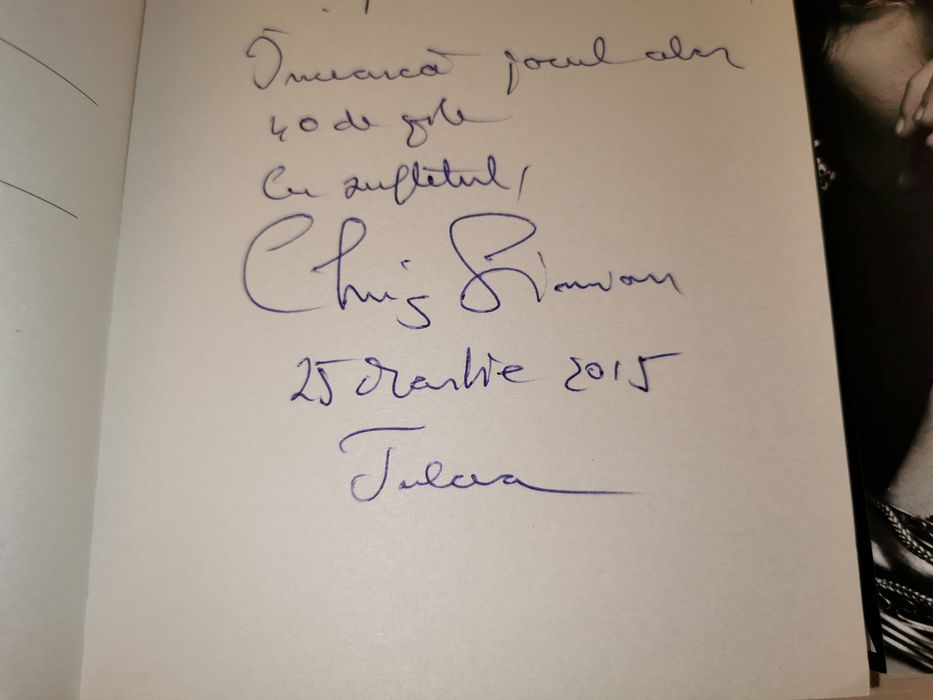 Încearcă jocul celor
40 de zile
Cu sufletul,
Chris Simion
25 Martie 2015
Tulcea